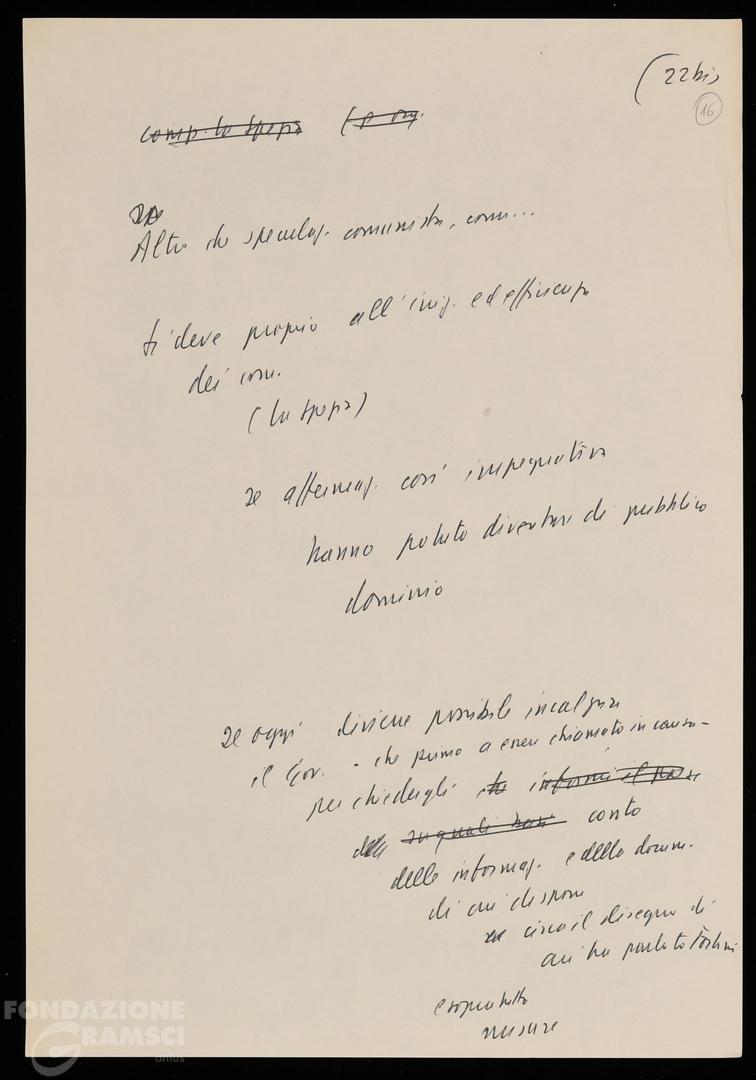 (22bis
16
comp. to Spezia (p. org.
Altro che speculaz. comunista, com...
si deve proprio all'iniz. ed efficienza
dei com.
(La Spezia)
se affermaz. così impegnativa
hanno potuto diventare di pubblico
dominio
se oggi diviene possibile incalzare
il Gov. - che primo a essere chiamato in causa -
per chiedergli che informi il
su quali basi conto
delle informaz. e della docum.
di cui dispone
circa il disegno di
cui ha parlato Forlani
e soprattutto
misure
FONDAZIONE
GRAMSCI
onlus